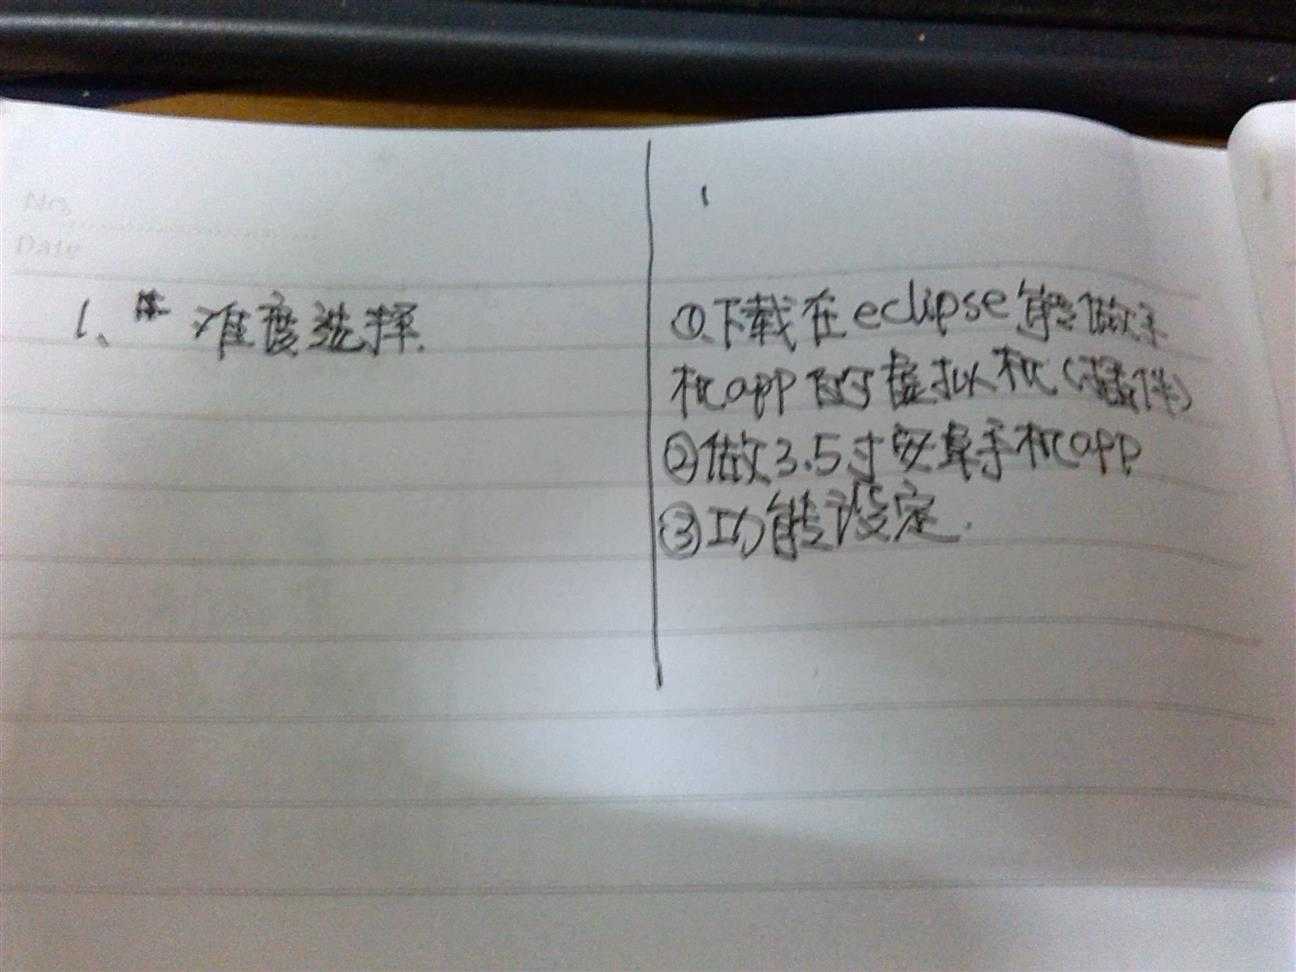 No.
Date
1、准度选择.
①下载在eclipse能做手
机app的虚拟机(插件)
②做3.5寸安卓手机app
③功能设定.